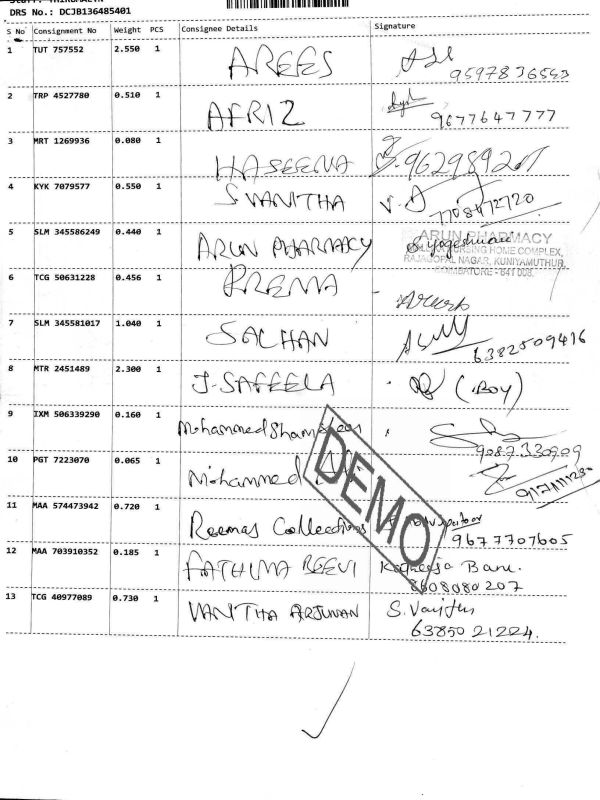 DRS No.: DCJB136485401
S No Consignment No Weight PCS Consignee Details Signature
1 TUT 757552 2.550 1 AREES
9597836553
2 TRP 4527780 0.510 1 AFRIZ
9677647777
3 MRT 1269936 0.080 1 HASEENA
4 KYK 7079577 0.550 1 S.VANITHA
5 SLM 345586249 0.440 1 ARUN PHARMACY
ARUN PHARMACY
NURSING HOME COMPLEX,
RAJAGOPAL NAGAR, KUNIYAMUTHUR,
COIMBATORE - 641 008.
6 TCG 50631228 0.456 1 PREMA
7 SLM 345581017 1.040 1 SACHAN
6382509416
8 MTR 2451489 2.300 1 J-SAFEELA (BOY)
9 IXM 506339290 0.160 1 Mohammed
10 PGT 7223070 0.065 1 Mohammed
DEMO
11 MAA 574473942 0.720 1 Reemas Collections
9677707605
12 MAA 703910352 0.185 1 FATHIMA BEEVI Banu.
8608080207
13 TCG 40977089 0.730 1 VANITHA ARJUNAN
63850 21224.